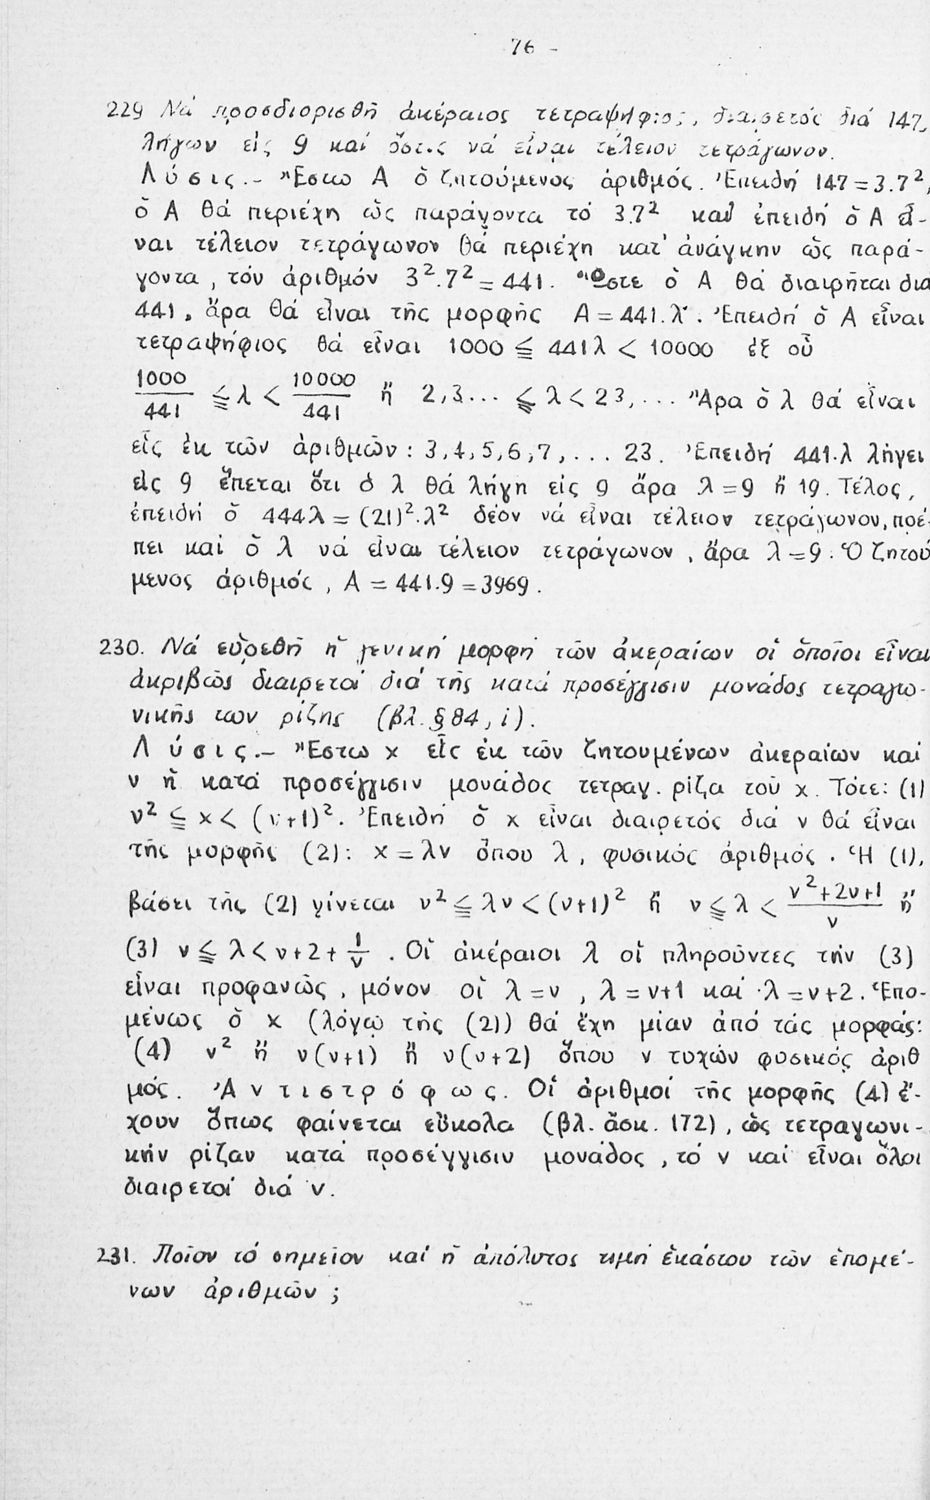 76 -
229 Νά προσδιορισθῆ ἀκέραιος τετραψήφιος, διαιρετός διά 147,
λήγων εἰς 9 καί ὅστις νά εἶναι τέλειον τετράγωνον.
Λύσις.- Ἔστω Α ὁ ζητούμενος ἀριθμός. Ἐπειδή 147=3.7²,
ὁ Α θά περιέχη ὡς παράγοντα τό 3.7² καί ἐπειδή ὁ Α εἶ-
ναι τέλειον τετράγωνον θά περιέχη κατ' ἀνάγκην ὡς παρά-
γοντα, τόν ἀριθμόν 3².7²=441. Ὥστε ὁ Α θά διαιρῆται δια
441, ἄρα θά εἶναι τῆς μορφῆς Α=441.λ. Ἐπειδή ὁ Α εἶναι
τετραψήφιος θά εἶναι 1000 ≦ 441λ < 10000 ἐξ οὗ
1000/441 ≦ λ < 10000/441 ἤ 2,3... ≦ λ < 23,... Ἄρα ὁ λ θά εἶναι
εἷς ἐκ τῶν ἀριθμῶν: 3,4,5,6,7,... 23. Ἐπειδή 441.λ λήγει
εἰς 9 ἕπεται ὅτι ὁ λ θά λήγη εἰς 9 ἄρα λ=9 ἤ 19. Τέλος,
ἐπειδή ὁ 444λ=(21)².λ² δέον νά εἶναι τέλειον τετράγωνον, πρέ-
πει καί ὁ λ νά εἶναι τέλειον τετράγωνον, ἄρα λ=9. Ὁ ζητού
μενος ἀριθμός, Α=441.9=3969.
230. Νά εὑρεθῆ ἡ γενική μορφή τῶν ἀκεραίων οἱ ὅποῖοι εἶναι
ἀκριβῶς διαιρετοί διά τῆς κατά προσέγγισιν μονάδος τετραγω-
νικῆς των ρίζης (βλ. §84, i).
Λύσις.- Ἔστω x εἷς ἐκ τῶν ζητουμένων ἀκεραίων καί
ν ἡ κατά προσέγγισιν μονάδος τετραγ. ρίζα τοῦ x. Τότε: (1)
ν² ≦ x < (ν+1)². Ἐπειδή ὁ x εἶναι διαιρετός διά ν θά εἶναι
τῆς μορφῆς (2): x=λν ὅπου λ, φυσικός ἀριθμός. Ἡ (1),
βάσει τῆς (2) γίνεται ν² ≦ λν < (ν+1)² ἤ ν ≦ λ < ν²+2ν+1/ν ἤ
(3) ν ≦ λ < ν+2+1/ν. Οἱ ἀκέραιοι λ οἱ πληροῦντες τήν (3)
εἶναι προφανῶς, μόνον οἱ λ=ν, λ=ν+1 καί λ=ν+2. Ἑπο-
μένως ὁ x (λόγῳ τῆς (2)) θά ἔχη μίαν ἀπό τάς μορφάς:
(4) ν² ἤ ν(ν+1) ἤ ν(ν+2) ὅπου ν τυχών φυσικός ἀριθ
μός. Ἀντιστρόφως. Οἱ ἀριθμοί τῆς μορφῆς (4) ἔ-
χουν ὅπως φαίνεται εὔκολα (βλ. ἄσκ. 172), ὡς τετραγωνι-
κήν ρίζαν κατά προσέγγισιν μονάδος, τό ν καί εἶναι ὅλοι
διαιρετοί διά ν.
231. Ποῖον τό σημεῖον καί ἡ ἀπόλυτος τιμή ἑκάστου τῶν ἑπομέ-
νων ἀριθμῶν;